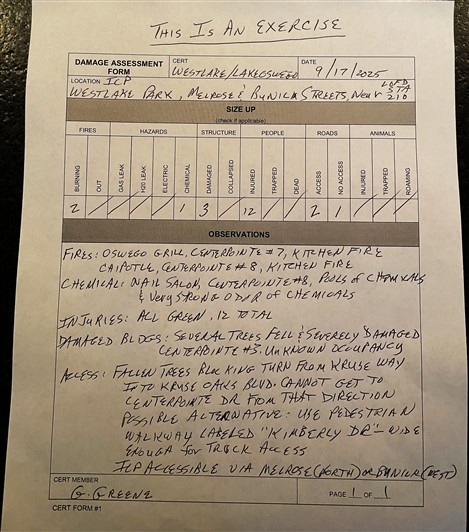 THIS IS AN EXERCISE
DAMAGE ASSESSMENT FORM
CERT
WESTLAKE/LAKEOSWEGO
DATE
9/17/2025
LOCATION ICP
WESTLAKE PARK, MELROSE & BUNICK STREETS, Near LOFD STA 210
SIZE UP
(check if applicable)
FIRES HAZARDS STRUCTURE PEOPLE ROADS ANIMALS
BURNING OUT GAS LEAK H20 LEAK ELECTRIC CHEMICAL DAMAGED COLLAPSED INJURED TRAPPED DEAD ACCESS NO ACCESS INJURED TRAPPED ROAMING
2 / / / / 1 3 / 12 / / 2 1 / / /
OBSERVATIONS
FIRES: OSWEGO GRILL, CENTERPOINTE #7, KITCHEN FIRE
CAIPOTLE, CENTERPOINTE #8, KITCHEN FIRE
CHEMICAL: NAIL SALON, CENTERPOINTE #8, POOLS of CHEMICALS
& VERY STRONG ODOR OF CHEMICALS
INJURIES: ALL GREEN, 12 TOTAL
DAMAGED BLDGS: SEVERAL TREES FELL & SEVERELY DAMAGED
CENTERPOINTE #3. UNKNOWN OCCUPANCY
ACCESS: FALLEN TREES BLOCKING TURN FROM KRUSE WAY
INTO KRUSE OAKS BLVD. CANNOT GET TO
CENTERPOINTE DR FROM THAT DIRECTION
POSSIBLE ALTERNATIVE: USE PEDESTRIAN
WALKWAY LABELED "KIMBERLY DR" - WIDE
ENOUGH FOR TRUCK ACCESS
ICP ACCESSIBLE VIA MELROSE (NORTH) OR BUNICK (WEST)
CERT MEMBER
G. GREENE
PAGE 1 OF 1
CERT FORM #1